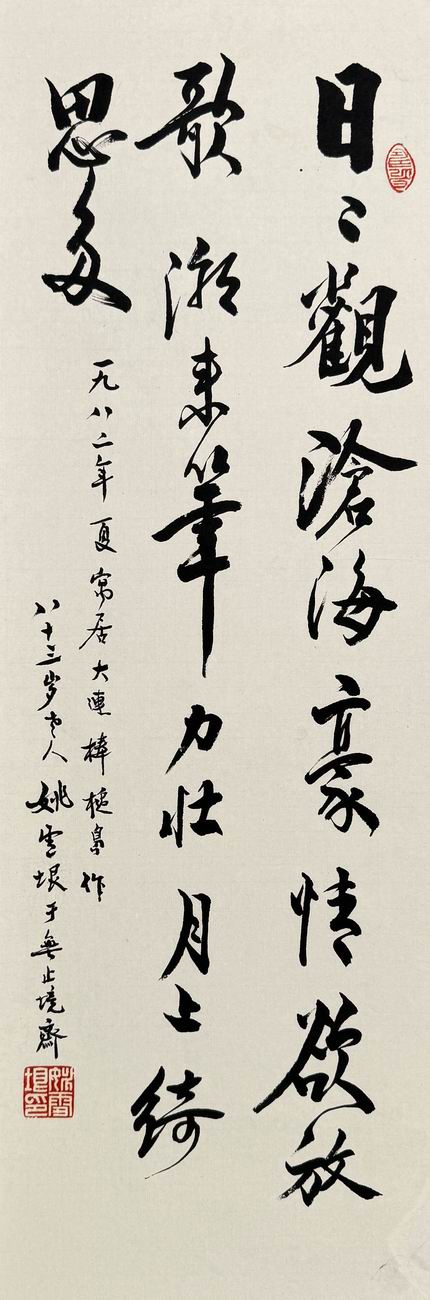 日々觀滄海豪情欲放
歌潮來筆力壯月上綺
思多
一九八二年夏寓居大連棒棰島作
八十三岁老人姚雪垠于無止境齋
姚雪垠印